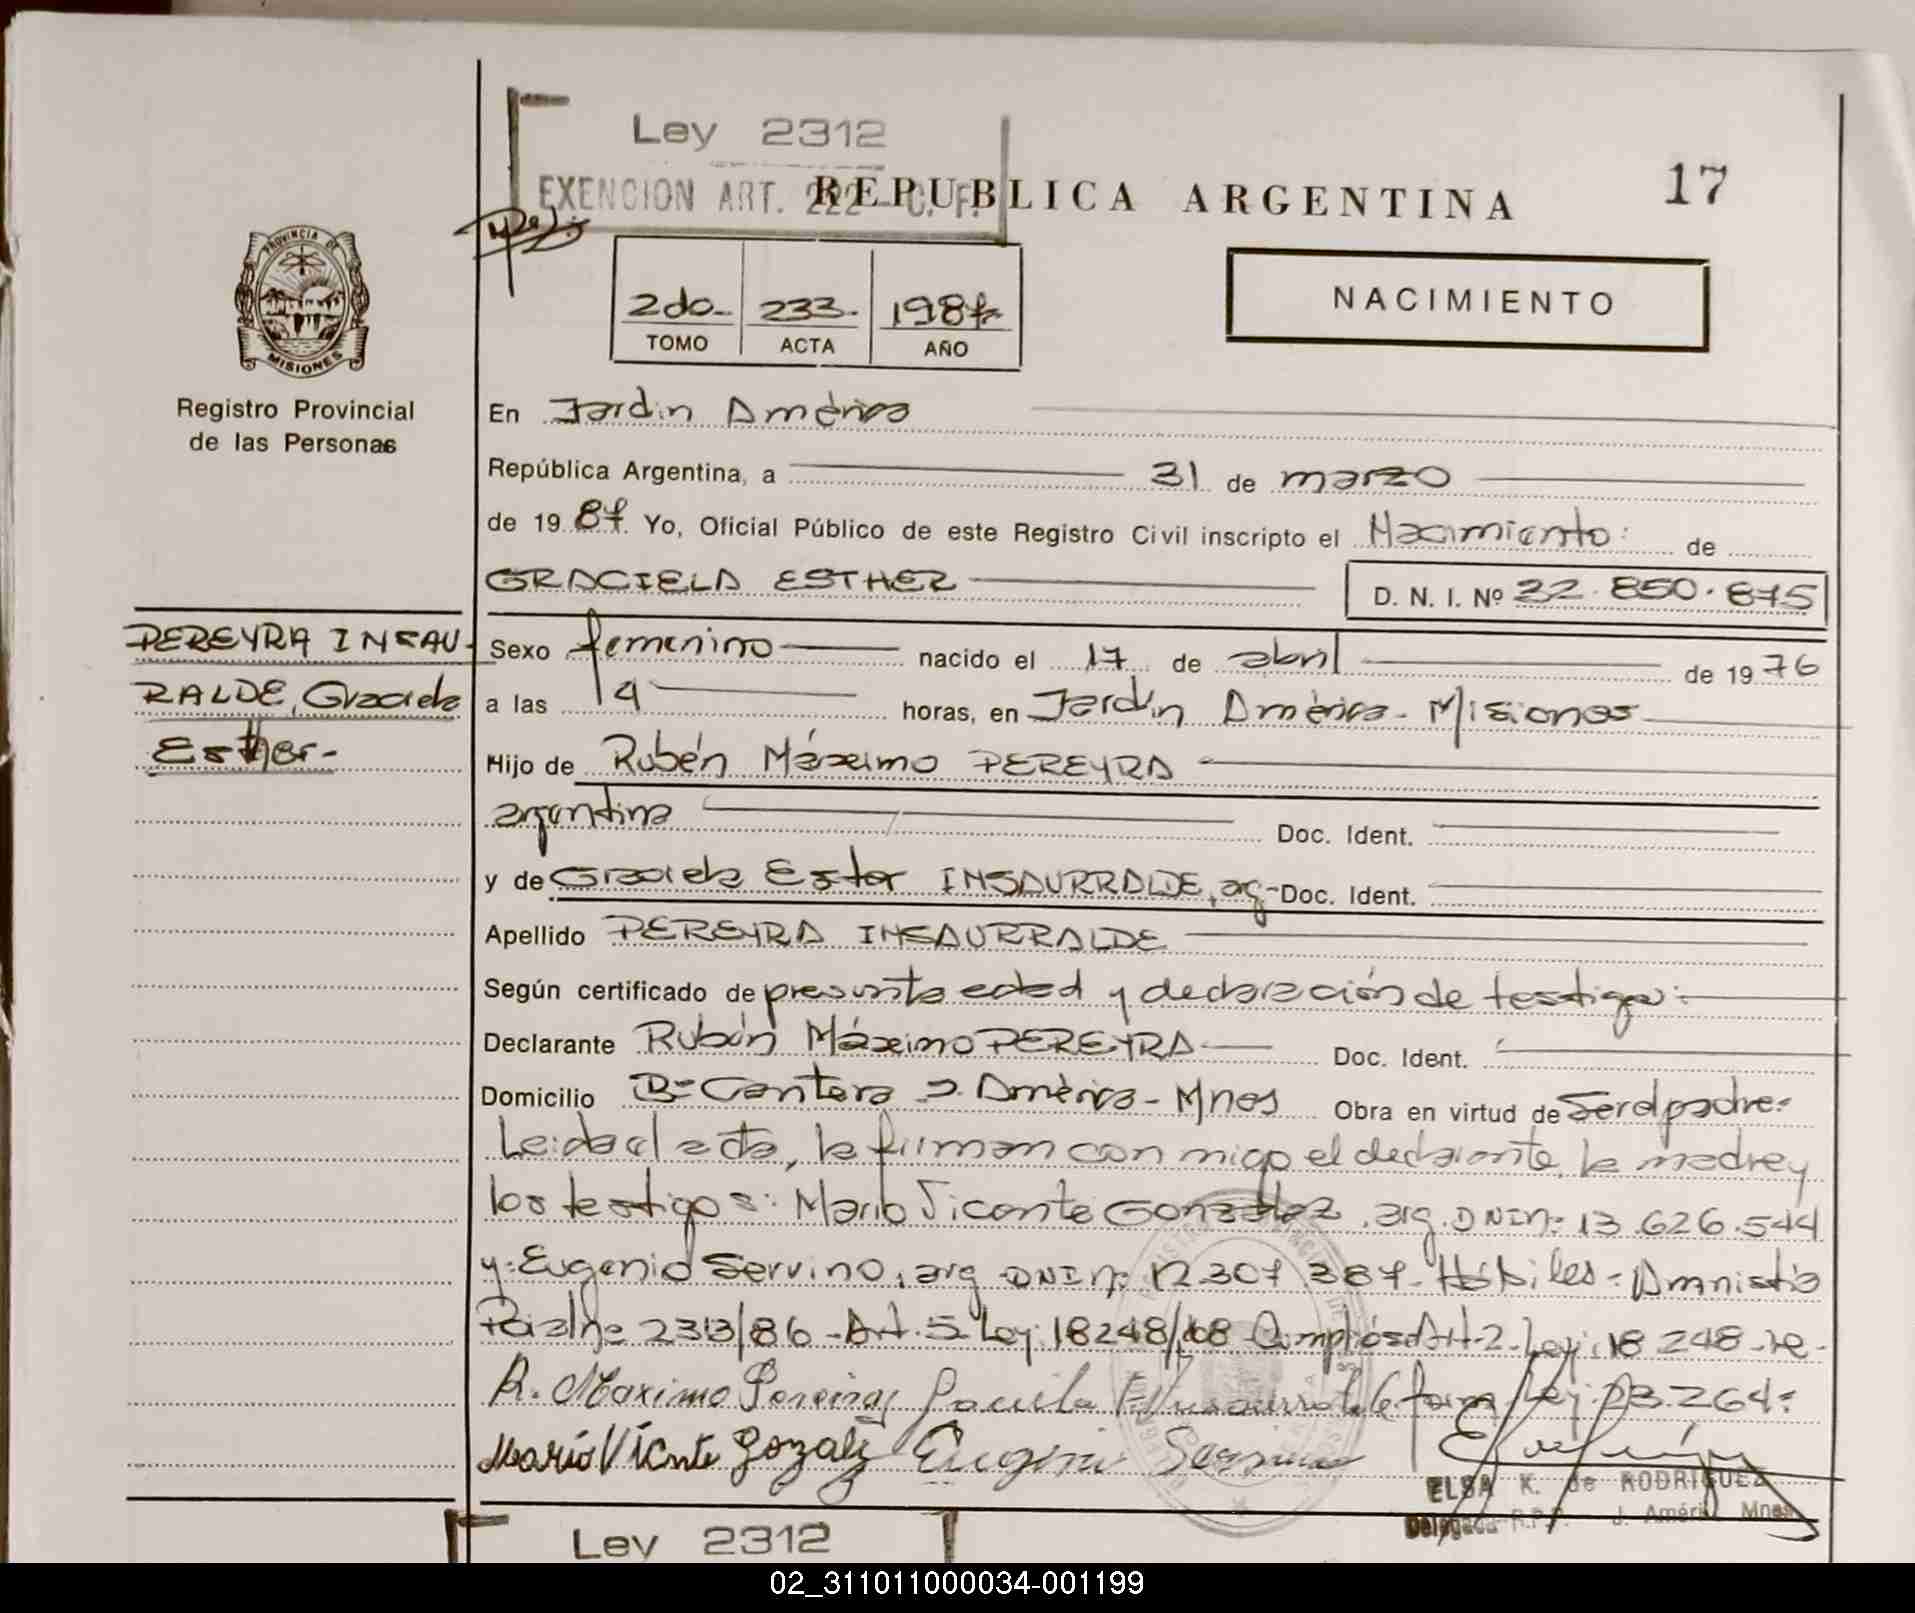 Ley 2312
EXENCION ART. 222 C. F.
REPUBLICA ARGENTINA
17
PROVINCIA DE
MISIONES
Registro Provincial
de las Personas
2do- 233- 1987
TOMO ACTA AÑO
NACIMIENTO
En Jardin América
República Argentina, a 31 de marzo
de 1987. Yo, Oficial Público de este Registro Civil inscripto el Nacimiento: de
GRACIELA ESTHER
D. N. I. Nº 22.850.875
PEREYRA INSAU-
RALDE, Graciela
Esther-
Sexo femenino nacido el 17 de abril de 1976
a las 14 horas, en Jardin América - Misiones
Hijo de Rubén Máximo PEREYRA
argentina Doc. Ident.
y de Graciela Ester INSAURRALDE, arg- Doc. Ident.
Apellido PEREYRA INSAURRALDE
Según certificado de presunta edad y declaración de testigos:
Declarante Rubén Máximo PEREYRA Doc. Ident.
Domicilio Bº Cantera J. América - Mnes Obra en virtud de Ser el padre-
Leida el acta, la firman con migo el declarante, la madre y
los testigos: Mario Vicente González, arg. DNI nº 13.626.544
y: Eugenio Servino, arg DNI nº 12.307.387- Hábiles - Amnistia
Pcial nº 2313/86 - Art. 5 Ley: 18248/68 Cumplióse Art-2- Ley: 18 248-re-
R. Maximo Pereira Ley 23.264-
Mario Vicente Gozalz Eugenio Servino
ELSA K. de RODRIGUEZ
Delegada R.P.P. J. Améri Mnes
Ley 2312
02_311011000034-001199